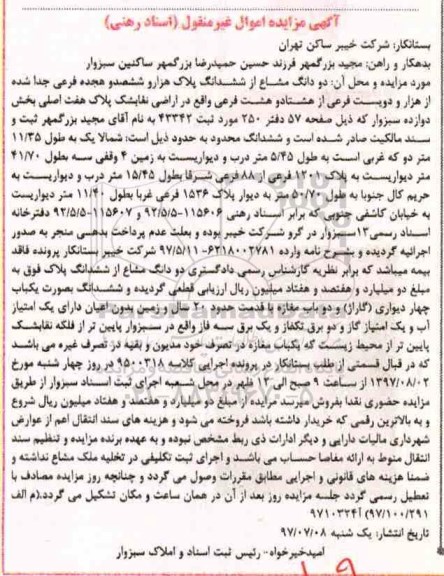 آگهی مزایده اموال غیرمنقول (اسناد رهنی)
بستانکار: شرکت خیبر ساکن تهران
بدهکار و راهن: مجید بزرگمهر فرزند حسین حمیدرضا بزرگمهر ساکنین سبزوار
مورد مزایده و محل آن: دو دانگ مشاع از ششدانگ پلاک هزارو ششصدو هجده فرعی جدا شده
از هزار و دویست فرعی از هشتادو هشت فرعی واقع در اراضی نقابشک پلاک هفت اصلی بخش
دوازده سبزوار که ذیل صفحه ۵۷ دفتر ۲۵۰ مورد ثبت ۴۳۳۴۲ به نام آقای مجید بزرگمهر ثبت و
سند مالکیت صادر شده است و ششدانگ محدود به حدود ذیل است: شمالا یک به طول ۱۱/۳۵
متر دو که غربی است به طول ۵/۴۵ متر درب و دیواریست به زمین ۴ وقفی سه بطول ۴۱/۷۰
متر دیواریست به پلاک ۱۲۰۱ فرعی از ۸۸ فرعی شرقا بطول ۱۵/۴۵ متر درب و دیواریست به
حریم کال جنوبا به طول ۵۰/۷۰ متر به دیوار پلاک ۱۵۳۶ فرعی غربا بطول ۱۱/۴۰ متر دیواریست
به خیابان کاشفی جنوبی که برابر اسناد رهنی ۱۱۵۶۰۶-۹۲/۵/۵ و ۱۱۵۶۰۷-۹۲/۵/۵ دفترخانه
اسناد رسمی۱۳سبزوار در گرو شرکت خیبر بوده و بعلت عدم پرداخت بدهی منجر به صدور
اجرائیه گردیده و بشرح نامه وارده ۶۲۱۸۰۰۲۷۸۱-۹۷/۵/۱۱ شرکت خیبر بستانکار پرونده فاقد
بیمه میباشد که برابر نظریه کارشناس رسمی دادگستری دو دانگ مشاع از ششدانگ پلاک فوق به
مبلغ دو میلیارد و هفتصد و هفتاد میلیون ریال ارزیابی قطعی گردیده و ششدانگ بصورت یکباب
چهار دیواری (گاراژ) و دو باب مغازه با قدمت حدود ۲۰ سال و زمین بدون اعیان دارای یک امتیاز
آب و یک امتیاز گاز و دو برق تکفاز و یک برق سه فاز واقع در سبزوار پایین تر از فلکه نقابشک
پایین تر از محیط زیست که یکباب مغازه در تصرف خود مدیون و بقیه در تصرف غیره می باشد
که در قبال قسمتی از طلب بستانکار در پرونده اجرایی کلاسه ۹۵۰۰۳۱۸ در روز چهار شنبه مورخ
۱۳۹۷/۰۸/۰۲ از ساعت ۹ صبح الی ۱۲ ظهر در محل شعبه اجرای ثبت اسناد سبزوار از طریق
مزایده حضوری نقدا بفروش میرسد مزایده از مبلغ دو میلیارد و هفتصد و هفتاد میلیون ریال شروع
و به بالاترین رقمی که خریدار داشته باشد فروخته می شود و هزینه های سند انتقال اعم از عوارض
شهرداری مالیات دارایی و دیگر ادارات ذی ربط مشخص نبوده و به عهده برنده مزایده و تنظیم سند
انتقال منوط به ارائه مفاصا حساب می باشد و اجرای ثبت تکلیفی در تخلیه ملک مشاع نداشته و
ضمنا هزینه های قانونی و اجرایی مطابق مقررات وصول می گردد و چنانچه روز مزایده مصادف با
تعطیل رسمی گردد جلسه مزایده روز بعد از آن در همان ساعت و مکان تشکیل می گردد.(م الف
۹۷/۱۰۰/۲۹۱) آ۹۷۱۰۳۲۴
تاریخ انتشار: یک شنبه ۹۷/۰۷/۰۸
امیدخیرخواه- رئیس ثبت اسناد و املاک سبزوار